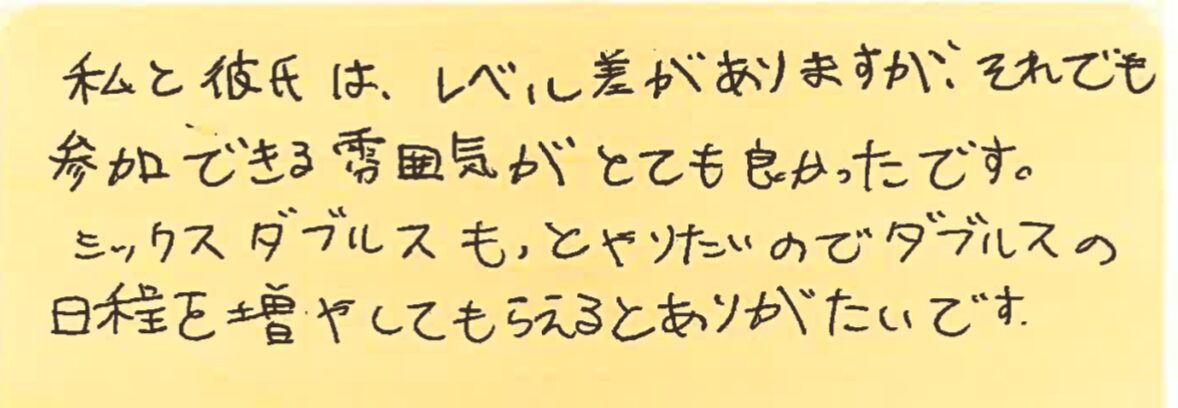 私と彼氏は、レベル差がありますが、それでも
参加できる雰囲気がとても良かったです。
ミックスダブルスもっとやりたいのでダブルスの
日程を増やしてもらえるとありがたいです.